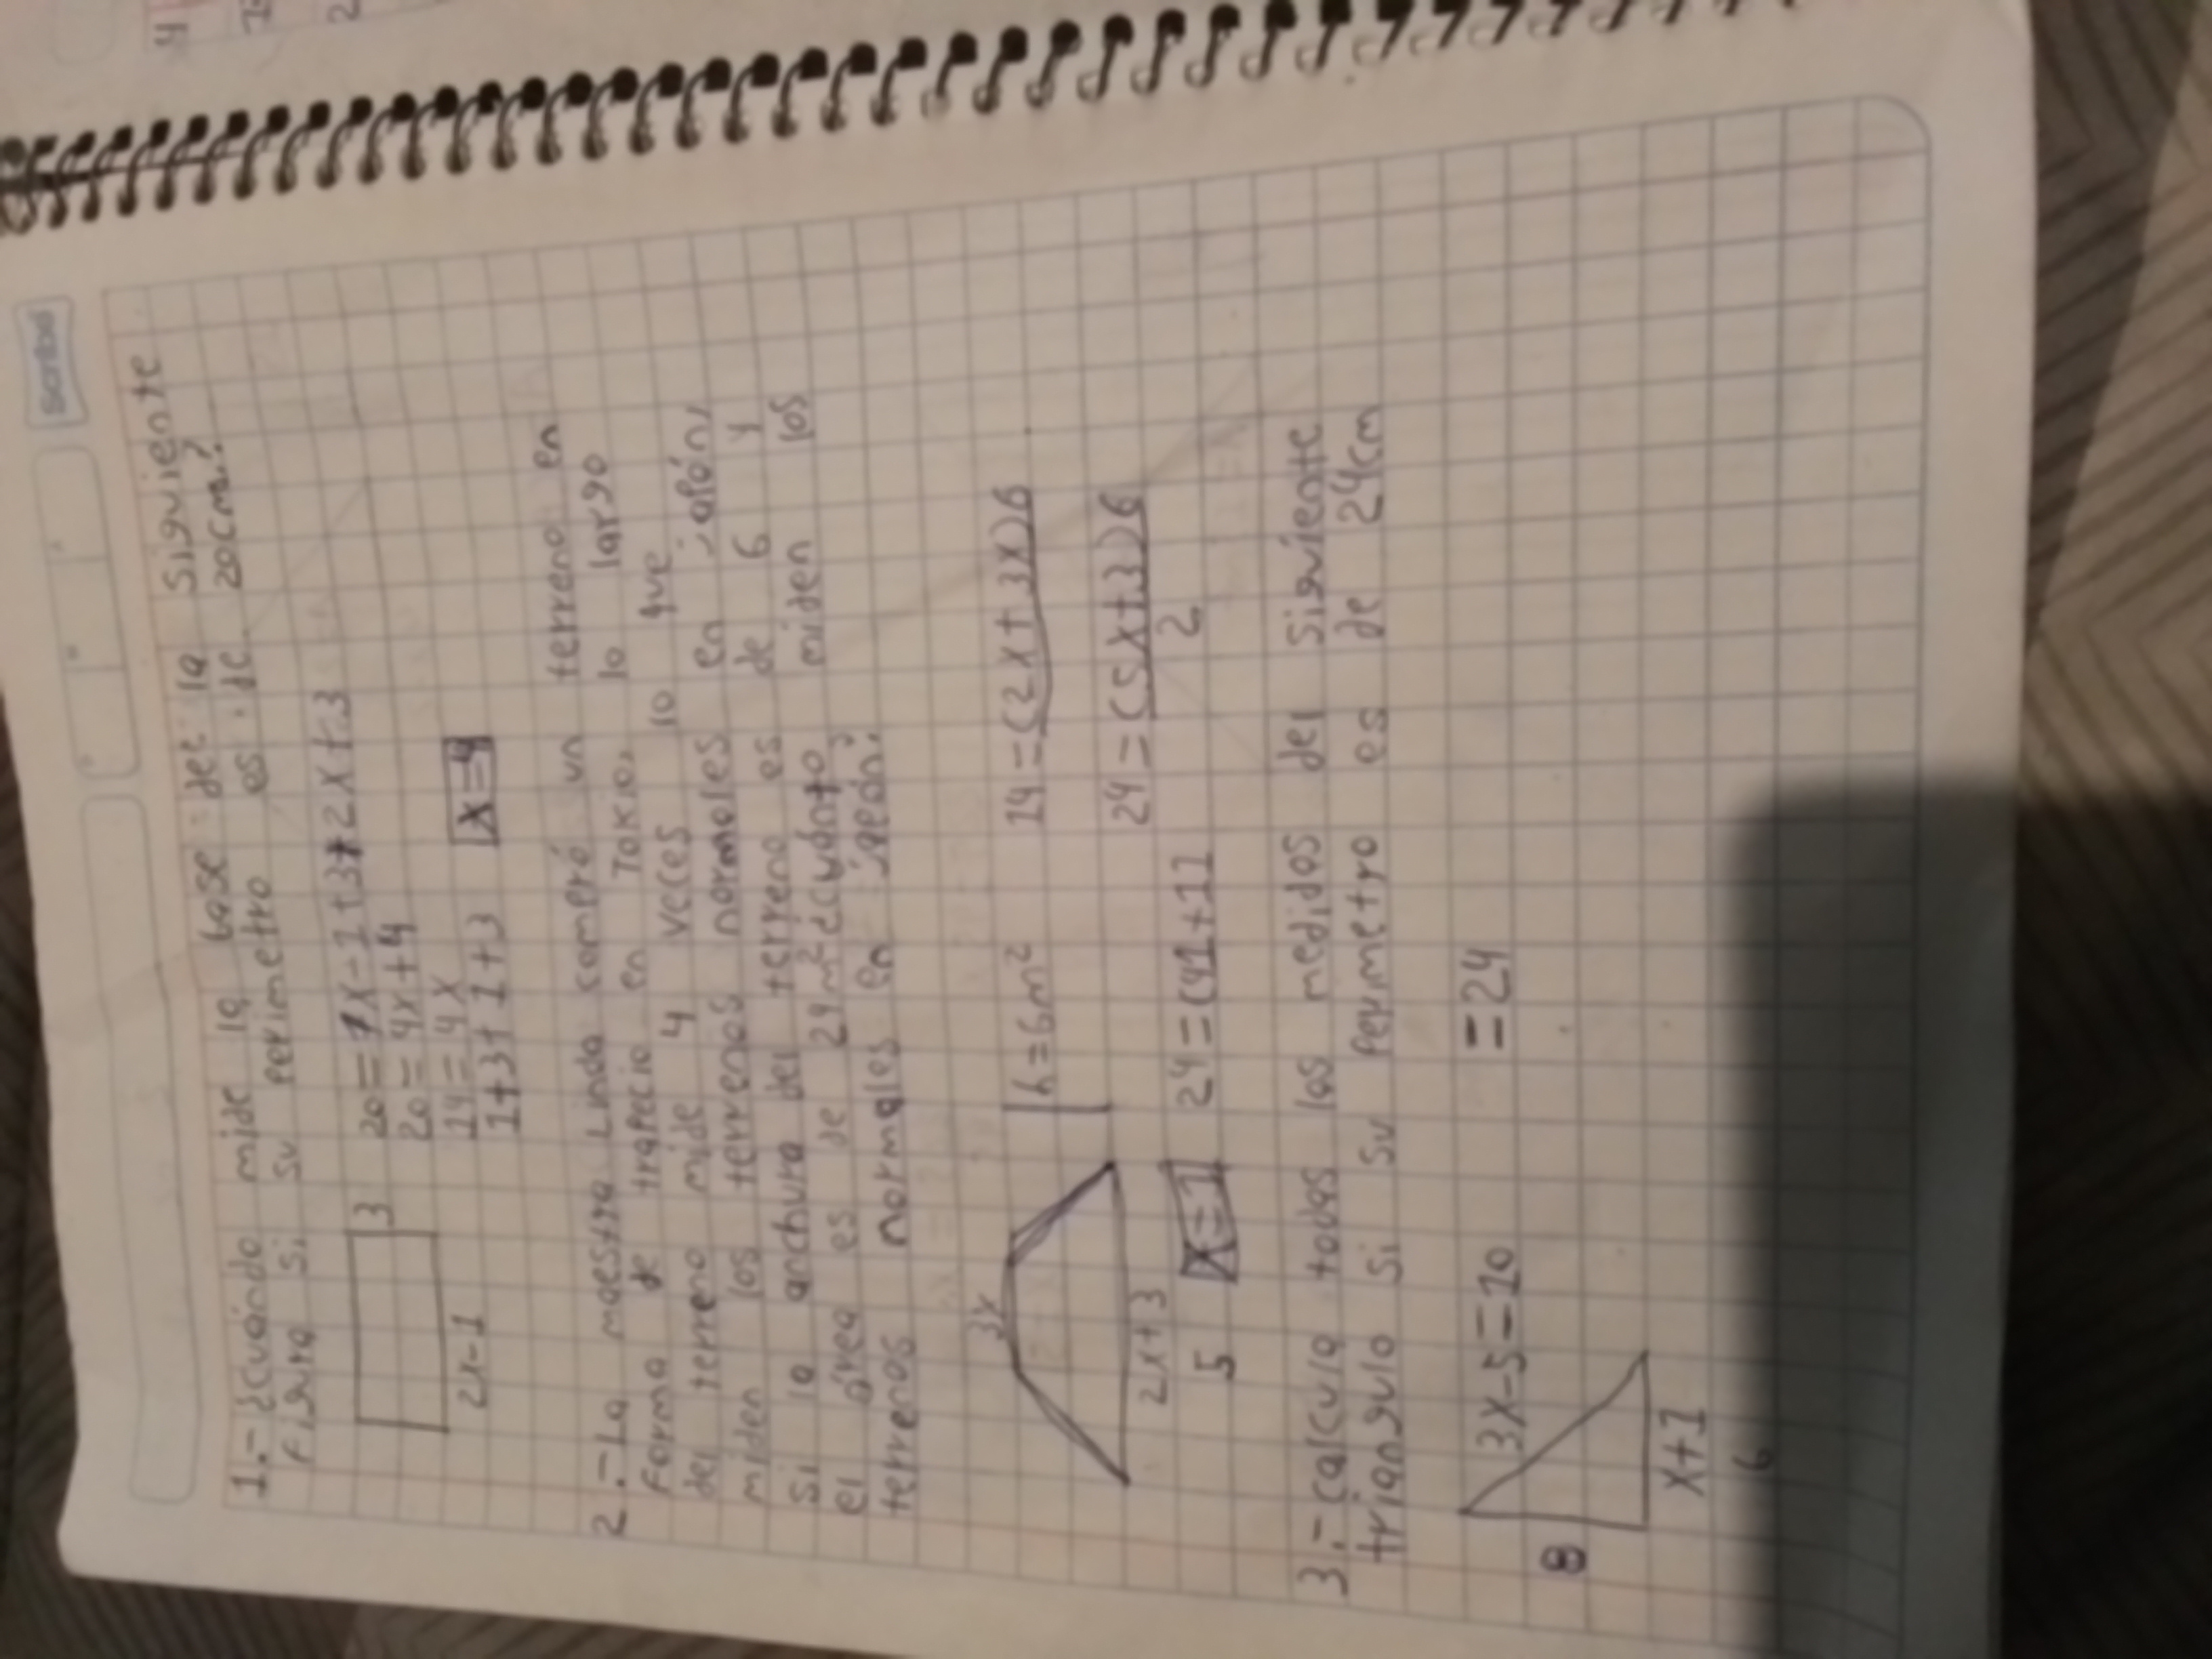 scribe
1.- ¿cuándo mide la base del la siguiente
figura si su perimetro es de 20cm?
3
2x-1
20=1x-1+3+2x+3
20=4x+4
14=4x
1+3+1+3
x=4
2.-La maestra Linda comperó un terreno en
forma de trapecio en Tokio, lo largo
del terreno mide 4 veces lo que
miden los terrenos normales en japón,
si la anchura del terreno es de 6 y
el área es de 24m² ¿cuánto miden los
terrenos normales en japón?
3x
2x+3
5
h=6m²
14=(2x+3x)6
24=(5x+3)6
2
x=1
24=(41+11
3.-calcula todas las medidas del siguiente
triangulo si su perimetro es de 24cm
3x-5=10
=24
8
x+1
6